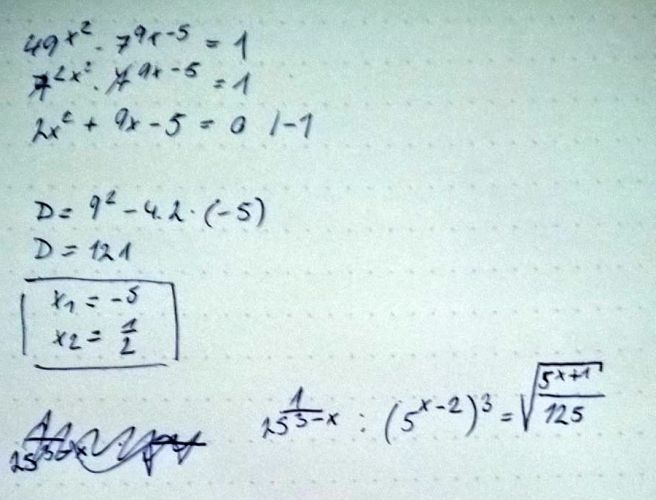 49^{x^2} · 7^{9x-5} = 1
7^{2x^2} · 7^{9x-5} = 1
2x^2 + 9x - 5 = 0 /-1
D = 9^2 - 4.2·(-5)
D = 121
x_1 = -5
x_2 = \frac{1}{2}
\frac{1}{25^{3-x}} : (5^{x-2})^3 = \sqrt{\frac{5^{x+1}}{125}}